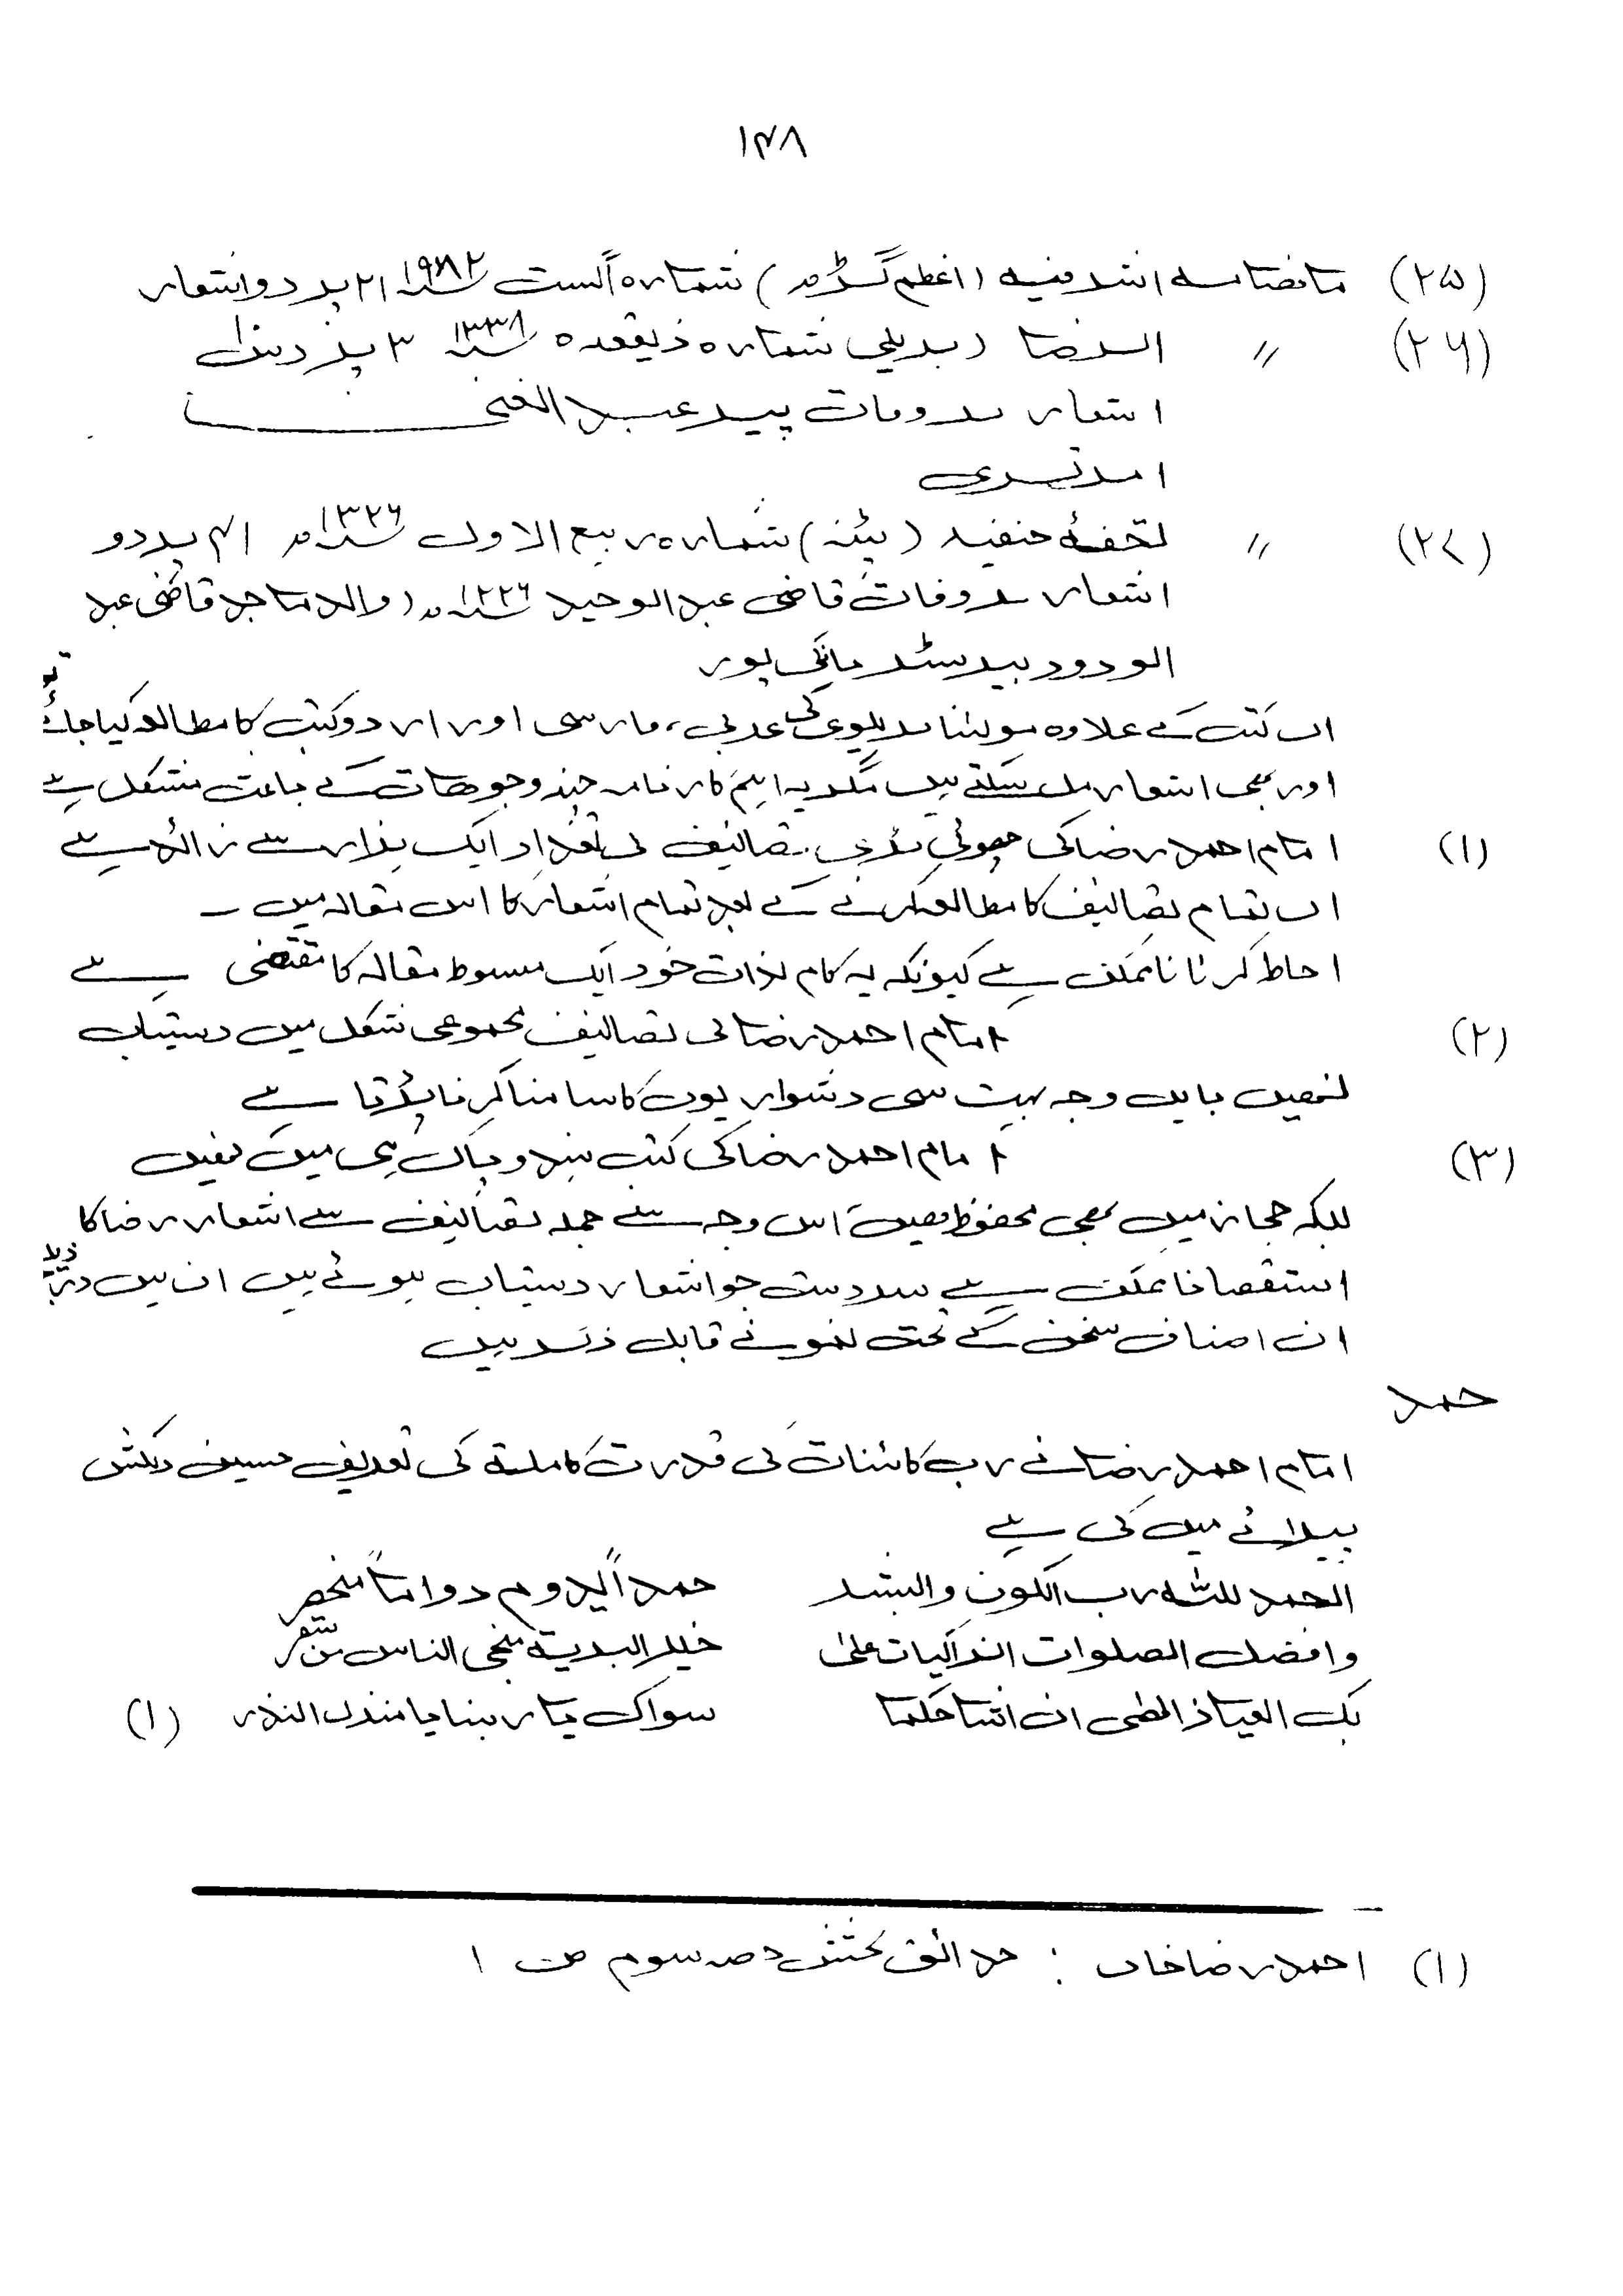 ۱۴۸
(۲۵) ماہنامہ اشرفیہ (اعظم گڑھ) شمارہ اگست ۱۹۸۲ ۲۱ پر دو اشعار
(۲۶) 〃 الرضا (بریلی شمارہ ذیقعدہ ۱۳۳۸ ۳ پر
اشعار بروفات پیر عبدالغنی
امرتسری
(۲۷) 〃 تحفۂ حنفیہ (پٹنہ) شمارہ ربیع الاول ۱۳۲۶ھ ۴۱ پر دو
اشعار بروفات قاضی عبدالوحید ۱۳۲۶ھ (والد ماجد قاضی عبد
الودود بیرسٹر بانکی پور
ان کتب کے علاوہ مولینا بریلوی کی عربی، فارسی اور اردو کتب کا مطالعہ کیا جائے تو
اور بھی اشعار مل سکتے ہیں مگر یہ اہم کارنامہ چند وجوھات کے باعث مشکل ہے
(۱) امام احمد رضا کی چھوٹی بڑی تصانیف کی تعداد ایک ہزار سے زائد ہے
ان تمام تصانیف کا مطالعہ کرنے کے بعد تمام اشعار کا اس مقالہ میں ۔
احاطہ کرنا ناممکن ہے کیونکہ یہ کام بذات خود ایک مبسوط مقالہ کا مقتضی ہے
(۲) امام احمد رضا کی تصانیف مجموعی شکل میں دستیاب
نہیں بایں وجہ بہت سی دشواریوں کا سامنا کرنا پڑتا ہے
(۳) امام احمد رضا کی کتب ہند و پاک ہی میں نہیں
بلکہ حجاز میں بھی محفوظ ہیں اس وجہ سے جملہ تصانیف سے اشعار رضا کا
استقصا ناممکن ہے سردست جو اشعار دستیاب ہوئے ہیں ان میں درج ذیل
ان اصناف سخن کے تحت نمونے قابل ذکر ہیں
حمد
امام احمد رضا نے رب کائنات کی قدرت کاملہ کی تعریف حسین دلکش
پیرائے میں کی ہے
الحمد للہ رب الکون والبشر حمداً یدوم دواماً منحصر
وافضل الصلوات الزاکیات علیٰ خیر البریۃ منجی الناس من سقر
بک العیاذ الٰھی ان اشا حکما سواک یا ربنا یا منزل النذر (۱)
(۱) احمد رضا خاں : حدائق بخشش حصہ سوم ص ۱